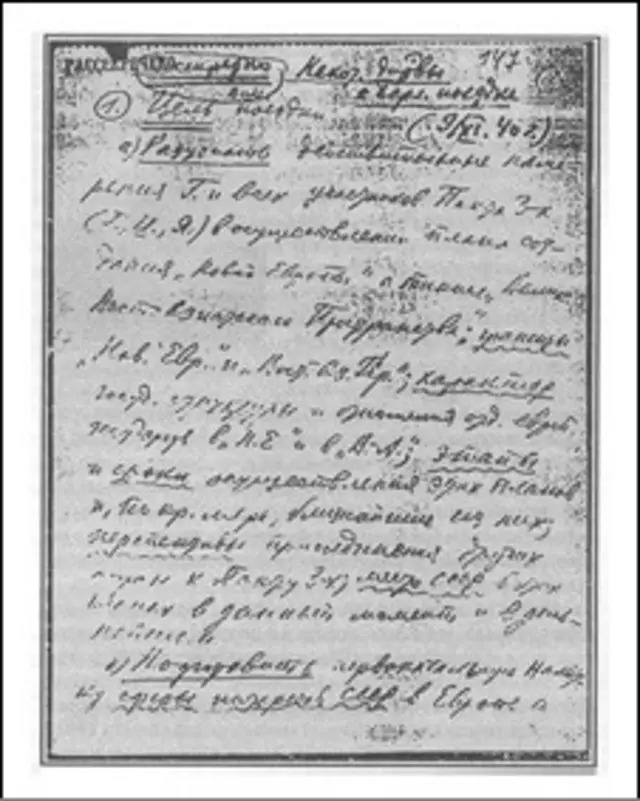 РАССЕКРЕЧЕНО 147
Некот. д-вы
к берл. поездке
1. Цель поездки (9/XI. 40 г.)
а) Разузнать действительные наме-
рения Г. и всех участников Пакта 3-х
(Г., И., Я.) в осуществлении плана соз-
дания „Новой Европы", а также „Велик.
Вост.-Азиатского Пространства"; границы
„Нов. Евр." и „Вост.-Аз. Пр."; характер
госуд. структуры и отношения отд. европ.
государств в „Н.Е." и в „В.-А."; этапы
и сроки осуществления этих планов
и, по кр. мере, ближайшие из них;
перспективы присоединения других
стран к Пакту 3-х; место СССР в этих
планах в данный момент и в даль-
нейшем.
б) Подготовить первоначальную намет-
ку сферы интересов СССР в Европе и